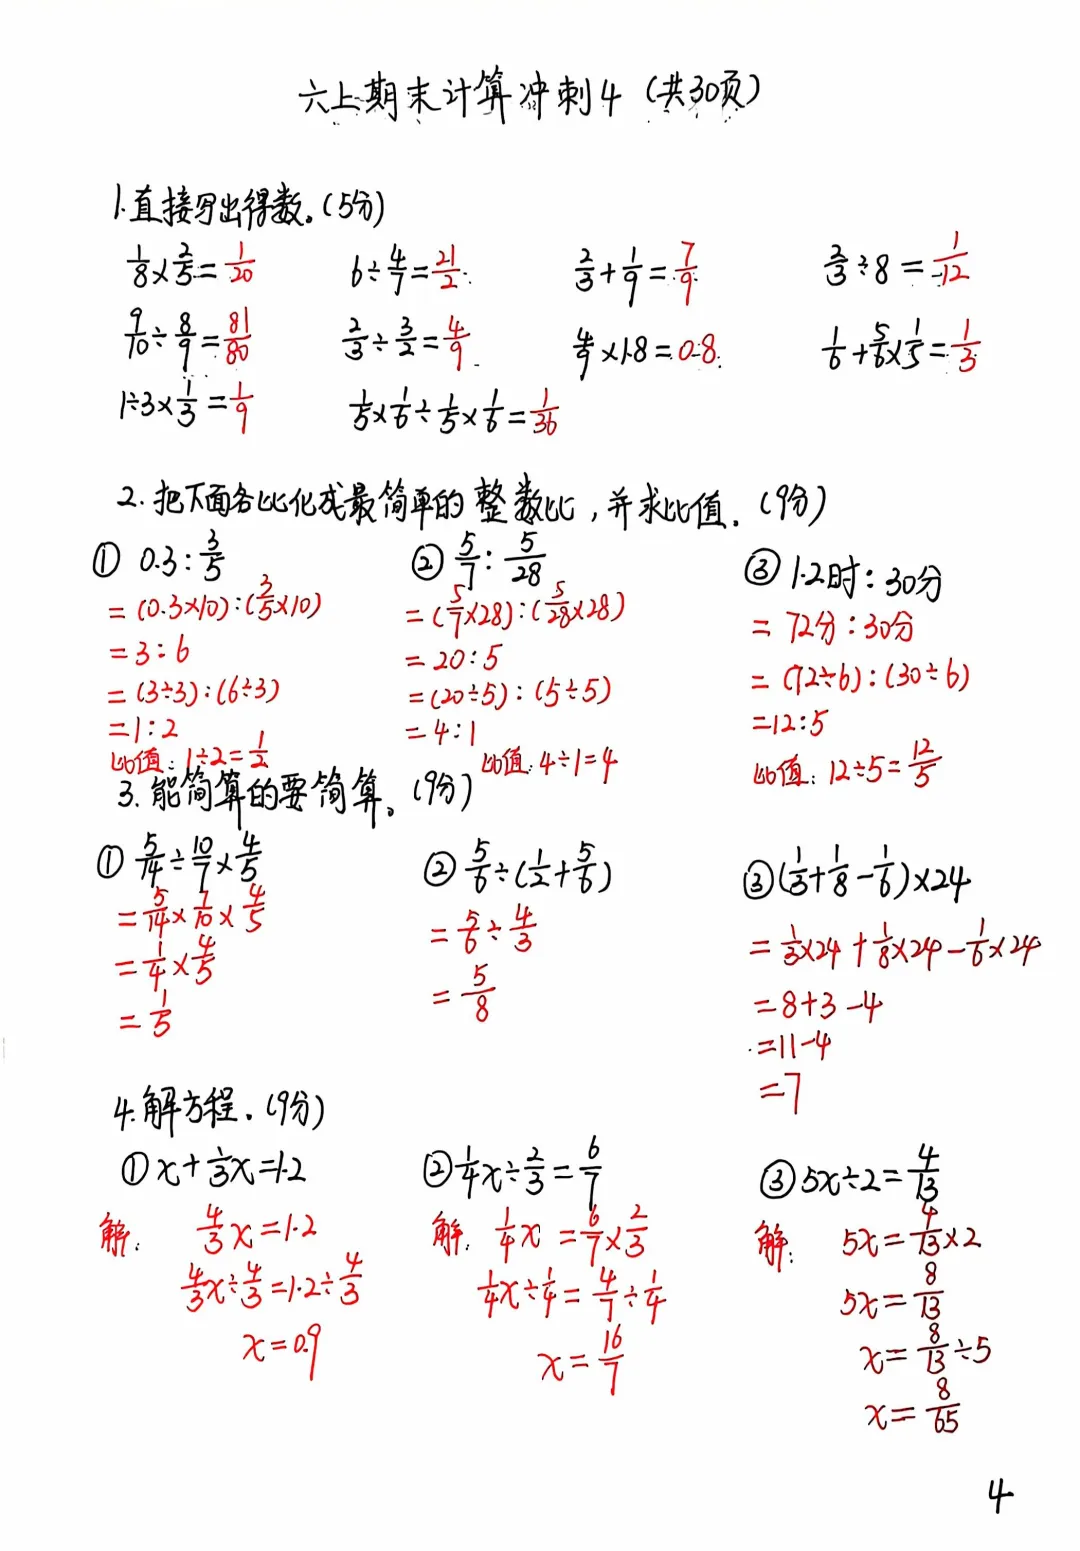 六上期末计算冲刺4（共30页）
1.直接写出得数。（5分）
1/8×2/5=1/20 6÷4/7=21/2 2/3+1/9=7/9 2/3÷8=1/12
9/10÷8/9=81/80 2/3÷3/2=4/9 4/9×1.8=0.8 1/6+5/6×1/5=1/3
1÷3×1/3=1/9 1/5×1/6÷1/5×1/6=1/36
2.把下面各比化成最简单的整数比，并求比值.（9分）
① 0.3:3/5
=(0.3×10):(3/5×10)
=3:6
=(3÷3):(6÷3)
=1:2
比值:1÷2=1/2
② 5/7:5/28
=(5/7×28):(5/28×28)
=20:5
=(20÷5):(5÷5)
=4:1
比值:4÷1=4
③ 1.2时:30分
=72分:30分
=(72÷6):(30÷6)
=12:5
比值:12÷5=12/5
3.能简算的要简算。（9分）
① 5/14÷10/7×4/5
=5/14×7/10×4/5
=1/4×4/5
=1/5
② 5/6÷(1/2+5/6)
=5/6÷4/3
=5/8
③ (1/3+1/8-1/6)×24
=1/3×24+1/8×24-1/6×24
=8+3-4
=11-4
=7
4.解方程.（9分）
① x+1/3x=1.2
解: 4/3x=1.2
4/3x÷4/3=1.2÷4/3
x=0.9
② 1/4x÷2/3=6/7
解: 1/4x=6/7×2/3
1/4x÷1/4=4/7÷1/4
x=16/7
③ 5x÷2=4/13
解: 5x=4/13×2
5x=8/13
x=8/13÷5
x=8/65
4